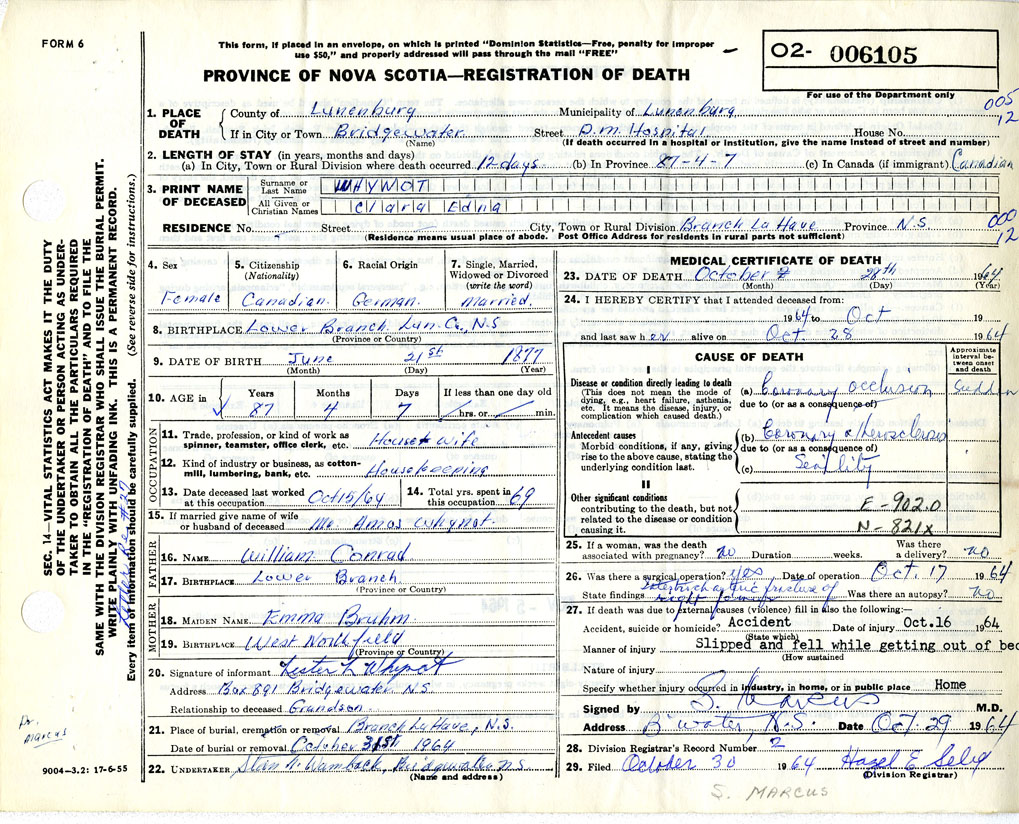 FORM 6
This form, if placed in an envelope, on which is printed "Dominion Statistics—Free, penalty for improper
use $50," and properly addressed will pass through the mail "FREE"
PROVINCE OF NOVA SCOTIA—REGISTRATION OF DEATH
02- 006105
For use of the Department only
005
12
1. PLACE OF DEATH County of Lunenburg Municipality of Lunenburg
If in City or Town Bridgewater Street D.M. Hospital House No.
(Name) (If death occurred in a hospital or institution, give the name instead of street and number)
2. LENGTH OF STAY (in years, months and days)
(a) In City, Town or Rural Division where death occurred 12 days (b) In Province 87-4-7 (c) In Canada (if immigrant) Canadian
3. PRINT NAME OF DECEASED Surname or Last Name WHYNOT
All Given or Christian Names Clara Edna
RESIDENCE No. Street City, Town or Rural Division Branch La Have Province N.S.
(Residence means usual place of abode. Post Office Address for residents in rural parts not sufficient)
000
12
4. Sex Female
5. Citizenship (Nationality) Canadian
6. Racial Origin German
7. Single, Married, Widowed or Divorced (write the word) Married
8. BIRTHPLACE Lower Branch Lun. Co., N.S
(Province or Country)
9. DATE OF BIRTH June 21st 1877
(Month) (Day) (Year)
10. AGE in Years Months Days If less than one day old
87 4 7 hrs. or min.
OCCUPATION
11. Trade, profession, or kind of work as spinler, teamster, office clerk, etc. House wife
12. Kind of industry or business, as cotton-mill, lumbering, bank, etc. Housekeeping
13. Date deceased last worked at this occupation Oct 15/64 14. Total yrs. spent in this occupation 69
15. If married give name of wife or husband of deceased Mr. Amos Whynot
FATHER
16. NAME William Conrad
17. BIRTHPLACE Lower Branch
(Province or Country)
MOTHER
18. MAIDEN NAME Emma Bruhm
19. BIRTHPLACE West Northfield
(Province or Country)
20. Signature of informant Lester L Whynot
Address Box 891 Bridgewater N.S.
Relationship to deceased Grandson
21. Place of burial, cremation or removal Branch La Have, N.S.
Date of burial or removal October 31st 1964
22. UNDERTAKER Bridgewater N.S.
(Name and address)
9004—3.2: 17-6-55
MEDICAL CERTIFICATE OF DEATH
23. DATE OF DEATH October 28th 1964
(Month) (Day) (Year)
24. I HEREBY CERTIFY that I attended deceased from:
1964 to Oct 19
and last saw her alive on Oct. 28 1964
CAUSE OF DEATH
Approximate interval between onset and death
I
Disease or condition directly leading to death
(This does not mean the mode of dying, e.g., heart failure, asthenia, etc. It means the disease, injury, or complication which caused death.)
(a) Coronary occlusion Sudden
due to (or as a consequence of)
Antecedent causes
Morbid conditions, if any, giving rise to the above cause, stating the underlying condition last.
(b) Coronary atherosclerosis
due to (or as a consequence of)
(c) Senility
II
Other significant conditions contributing to the death, but not related to the disease or condition causing it.
E-902.0
N-821x
25. If a woman, was the death associated with pregnancy? No Duration weeks. Was there a delivery? no
26. Was there a surgical operation? yes Date of operation Oct. 17 1964
State findings Intertrochanteric fracture of right femur Was there an autopsy? No
27. If death was due to external causes (violence) fill in also the following:—
Accident, suicide or homicide? Accident Date of injury Oct.16 1964
(State which)
Manner of injury Slipped and fell while getting out of bed
(How sustained)
Nature of injury
Specify whether injury occurred in industry, in home, or in public place Home
Signed by S. Marcus M.D.
Address B'water, N.S. Date Oct. 29 1964
28. Division Registrar's Record Number 2
29. Filed October 30 1964 Hazel E Selig
(Division Registrar)
S. MARCUS
SEC. 14—VITAL STATISTICS ACT MAKES IT THE DUTY
OF THE UNDERTAKER OR PERSON ACTING AS UNDER-
TAKER TO OBTAIN ALL THE PARTICULARS REQUIRED
IN THE "REGISTRATION OF DEATH" AND TO FILE THE
SAME WITH THE DIVISION REGISTRAR WHO SHALL ISSUE THE BURIAL PERMIT.
WRITE PLAINLY WITH UNFADING INK. THIS IS A PERMANENT RECORD.
Letter Re #27
Every item of information should be carefully supplied. (See reverse side for instructions.)
Dr.
Marcus